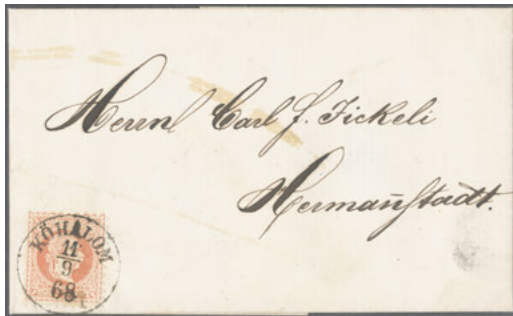 Herrn Carl J. Fickeli
Hermañstadt.
KŐHALOM
11
9
68